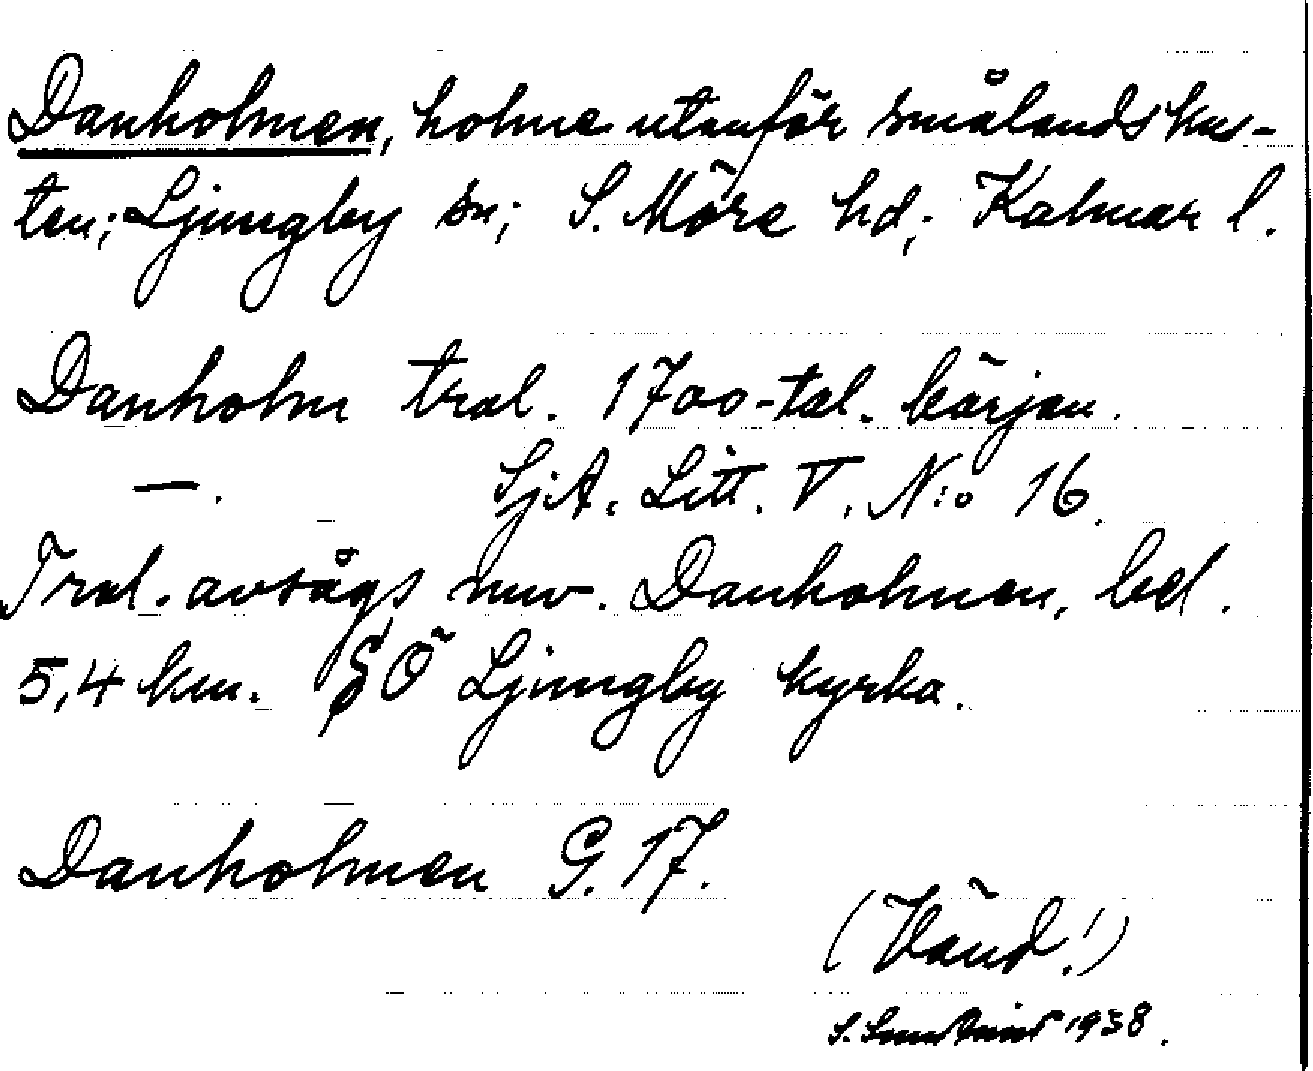 Danholmen, holme utanför smålandskus-
ten; Ljungby sn; S. Möre hd; Kalmar l.
Danholm tral. 1700-tal. början.
—. SjA. Litt. V. N:o 16.
Tral. avsågs nuv. Danholmen, bel.
5,4 km. SÖ Ljungby kyrka.
Danholmen G. 17.
(Vänd!)
S. 1938.